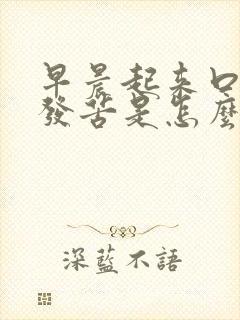 早晨起来口
發苦是怎麼
深藍不語